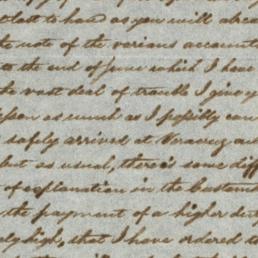 to hand as you will alrea
the note of the various accounts
to the end of June which I have
the vast deal of trouble I give y
as much as I possibly can
safely arrived at Veracruz an
but as usual, there's some diff
of explanation in the
the payment of a higher dut
high, that I have ordered to